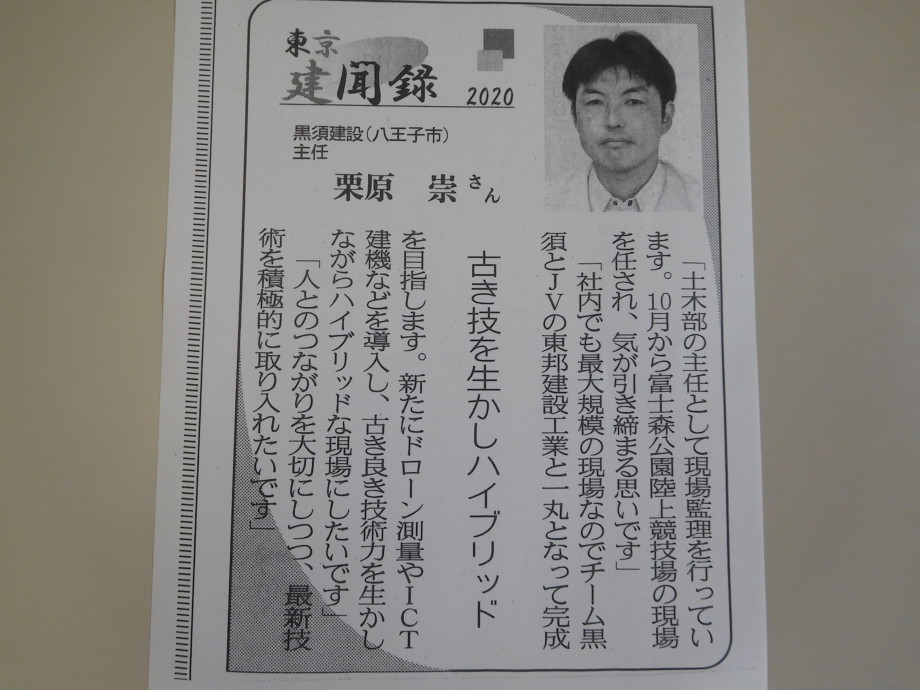 東京
建聞録 2020
黒須建設(八王子市)
主任
栗原 崇さん
「土木部の主任として現場監理を行ってい
ます。10月から富士森公園陸上競技場の現場
を任され、気が引き締まる思いです」
「社内でも最大規模の現場なのでチーム黒
須とJVの東邦建設工業と一丸となって完成
古き技を生かしハイブリッド
を目指します。新たにドローン測量やICT
建機などを導入し、古き良き技術力を生かし
ながらハイブリッドな現場にしたいです」
「人とのつながりを大切にしつつ、最新技
術を積極的に取り入れたいです」